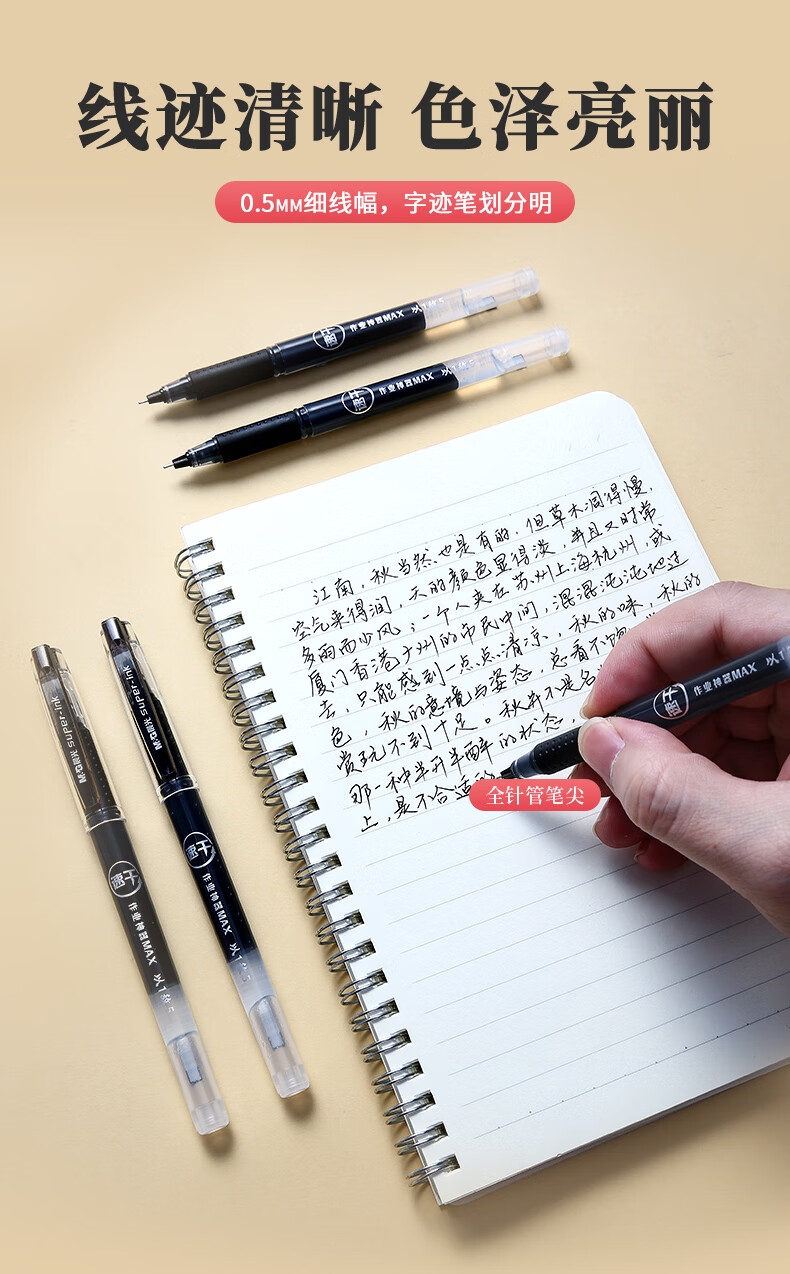 线迹清晰 色泽亮丽
0.5MM细线幅，字迹笔划分明
速干 作业神器MAX 以1
速干 作业神器MAX 以1
江南，秋当然也是有的，但草木凋得慢，
空气来得润，天的颜色显得淡，并且又时常
多雨而少风；一个人夹在苏州上海杭州，或
厦门香港广州的市民中间，混混沌沌地过
去，只能感到一点点清凉，秋的味，秋的
色，秋的意境与姿态，总看不饱
赏玩不到十足。秋并不是名
那一种半开半醉的状态，
上，是不合适的
速干 作业神器MAX 以1
全针管笔尖
M&G晨光 SUPER-INK
速干 作业神器MAX 以1
M&G晨光 SUPER-INK
速干 作业神器MAX 以1